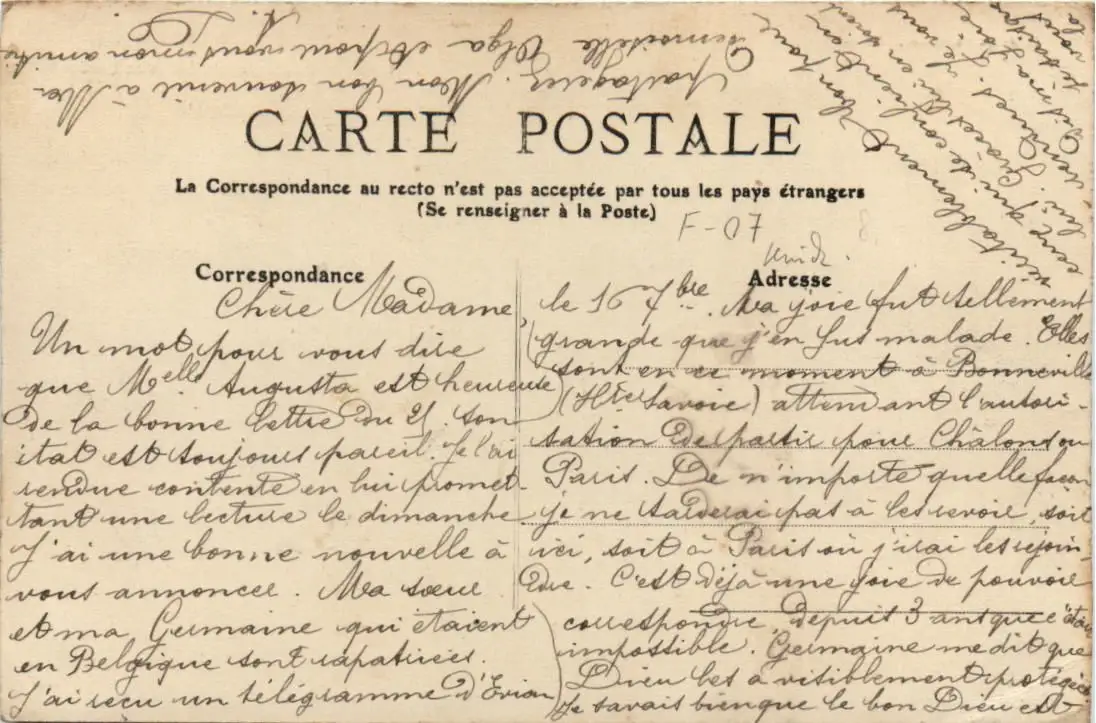 CARTE POSTALE
La Correspondance au recto n'est pas acceptée par tous les pays étrangers
(Se renseigner à la Poste)
F-07
Correspondance
Adresse
Chère Madame,
Un mot pour vous dire
que Melle Augusta est heureuse
de la bonne lettre du 21. Son
état est toujours pareil. Je l'ai
rendue contente en lui promet-
tant une lecture le dimanche
J'ai une bonne nouvelle à
vous annoncer. Ma sœur
et ma Germaine qui étaient
en Belgique sont rapatriées.
J'ai reçu un télégramme d'Evian
le 16 7bre. Ma joie fut tellement
grande que j'en fus malade. Elles
sont en ce moment à Bonneville
(Hte Savoie) attendant l'autori-
sation de partir pour Châlons ou
Paris. De n'importe quelle façon
je ne tarderai pas à les revoir, soit
ici, soit à Paris où j'irai les rejoin-
dre. C'est déjà une joie de pouvoir
correspondre, depuis 3 ans que c'était
impossible. Germaine me dit que
Dieu les a visiblement protégées
Je savais bien que le bon Dieu est
véritablement bon pour
ceux qui se confient en
lui.
Partagerez mon bon souvenir à Me-
demoiselle Olga et pour vous mon amitié